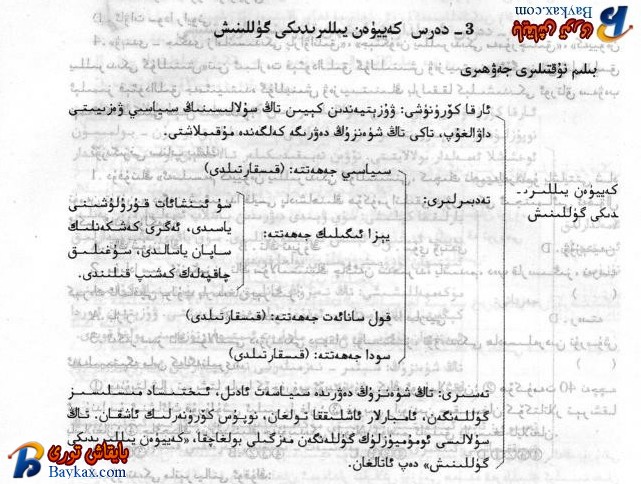 بايقاش تورى
Baykax.com
3 ـ دەرس كەييۈەن يىللىرىدىكى گۈللىنىش
بىلىم نۇقتىلىرى جەۋھىرى
ئارقا كۆرۈنۈشى: ۋۇزېتيەندىن كېيىن تاڭ سۇلالىسىنىڭ سىياسىي ۋەزىيىتى
داۋالغۇپ، تاكى تاڭ شۈەنزۇڭ دەۋرىگە كەلگەندە مۇقىملاشتى.
سىياسىي جەھەتتە: (قىسقارتىلدى)
كەييۈەن يىللىرىـ
دىكى گۈللىنىش
تەدبىرلىرى:
يېزا ئىگىلىك جەھەتتە:
سۇ ئىنشائات قۇرۇلۇشىنى
ياسىدى، ئەگرى كەشكەنلىك
ساپان ياسالدى، سۇغىلىق
چاقپەلەك كەشىپ قىلىندى.
قول سانائەت جەھەتتە: (قىسقارتىلدى)
سودا جەھەتتە: (قىسقارتىلدى)
تەسىرى: تاڭ شۈەنزۇڭ دەۋرىدە سىياسەت ئادىل، ئىقتىساد مىسلىسىز
گۈللەنگەن، ئامبارلار ئاشلىققا تولغان، نوپۇس كۆرۈنەرلىك ئاشقان. تاڭ
سۇلالىسى ئومۇميۈزلۈك گۈللەنگەن مەزگىلى بولغاچقا، «كەييۈەن يىللىرىدىكى
گۈللىنىش» دەپ ئاتالغان.
بايقاش تورى
Baykax.com